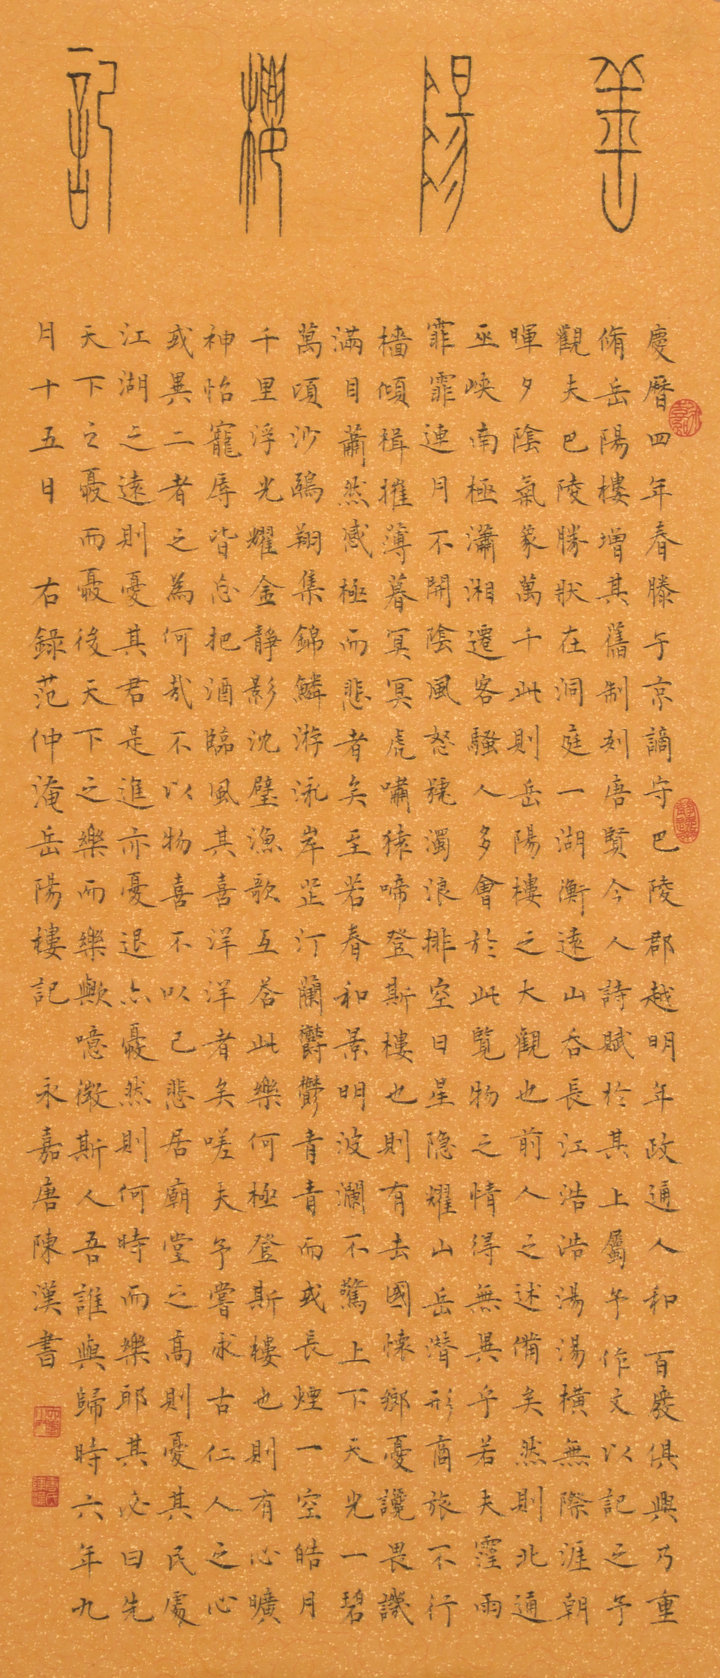 岳陽樓記
慶曆四年春滕子京謫守巴陵郡越明年政通人和百廢俱興乃重
脩岳陽樓增其舊制刻唐賢今人詩賦於其上屬予作文以記之予
觀夫巴陵勝狀在洞庭一湖銜遠山吞長江浩浩湯湯橫無際涯朝
暉夕陰氣象萬千此則岳陽樓之大觀也前人之述備矣然則北通
巫峽南極瀟湘遷客騷人多會於此覽物之情得無異乎若夫霪雨
霏霏連月不開陰風怒號濁浪排空日星隱耀山岳潛形商旅不行
檣傾楫摧薄暮冥冥虎嘯猿啼登斯樓也則有去國懷鄉憂讒畏譏
滿目蕭然感極而悲者矣至若春和景明波瀾不驚上下天光一碧
萬頃沙鷗翔集錦鱗游泳岸芷汀蘭鬱鬱青青而或長煙一空皓月
千里浮光耀金靜影沈璧漁歌互荅此樂何極登斯樓也則有心曠
神怡寵辱皆忘把酒臨風其喜洋洋者矣嗟夫予嘗求古仁人之心
或異二者之為何哉不以物喜不以己悲居廟堂之高則憂其民處
江湖之遠則憂其君是進亦憂退亦憂然則何時而樂耶其必曰先
天下之憂而憂後天下之樂而樂歟噫微斯人吾誰與歸時六年九
月十五日 右錄范仲淹岳陽樓記 永嘉唐陳漢書